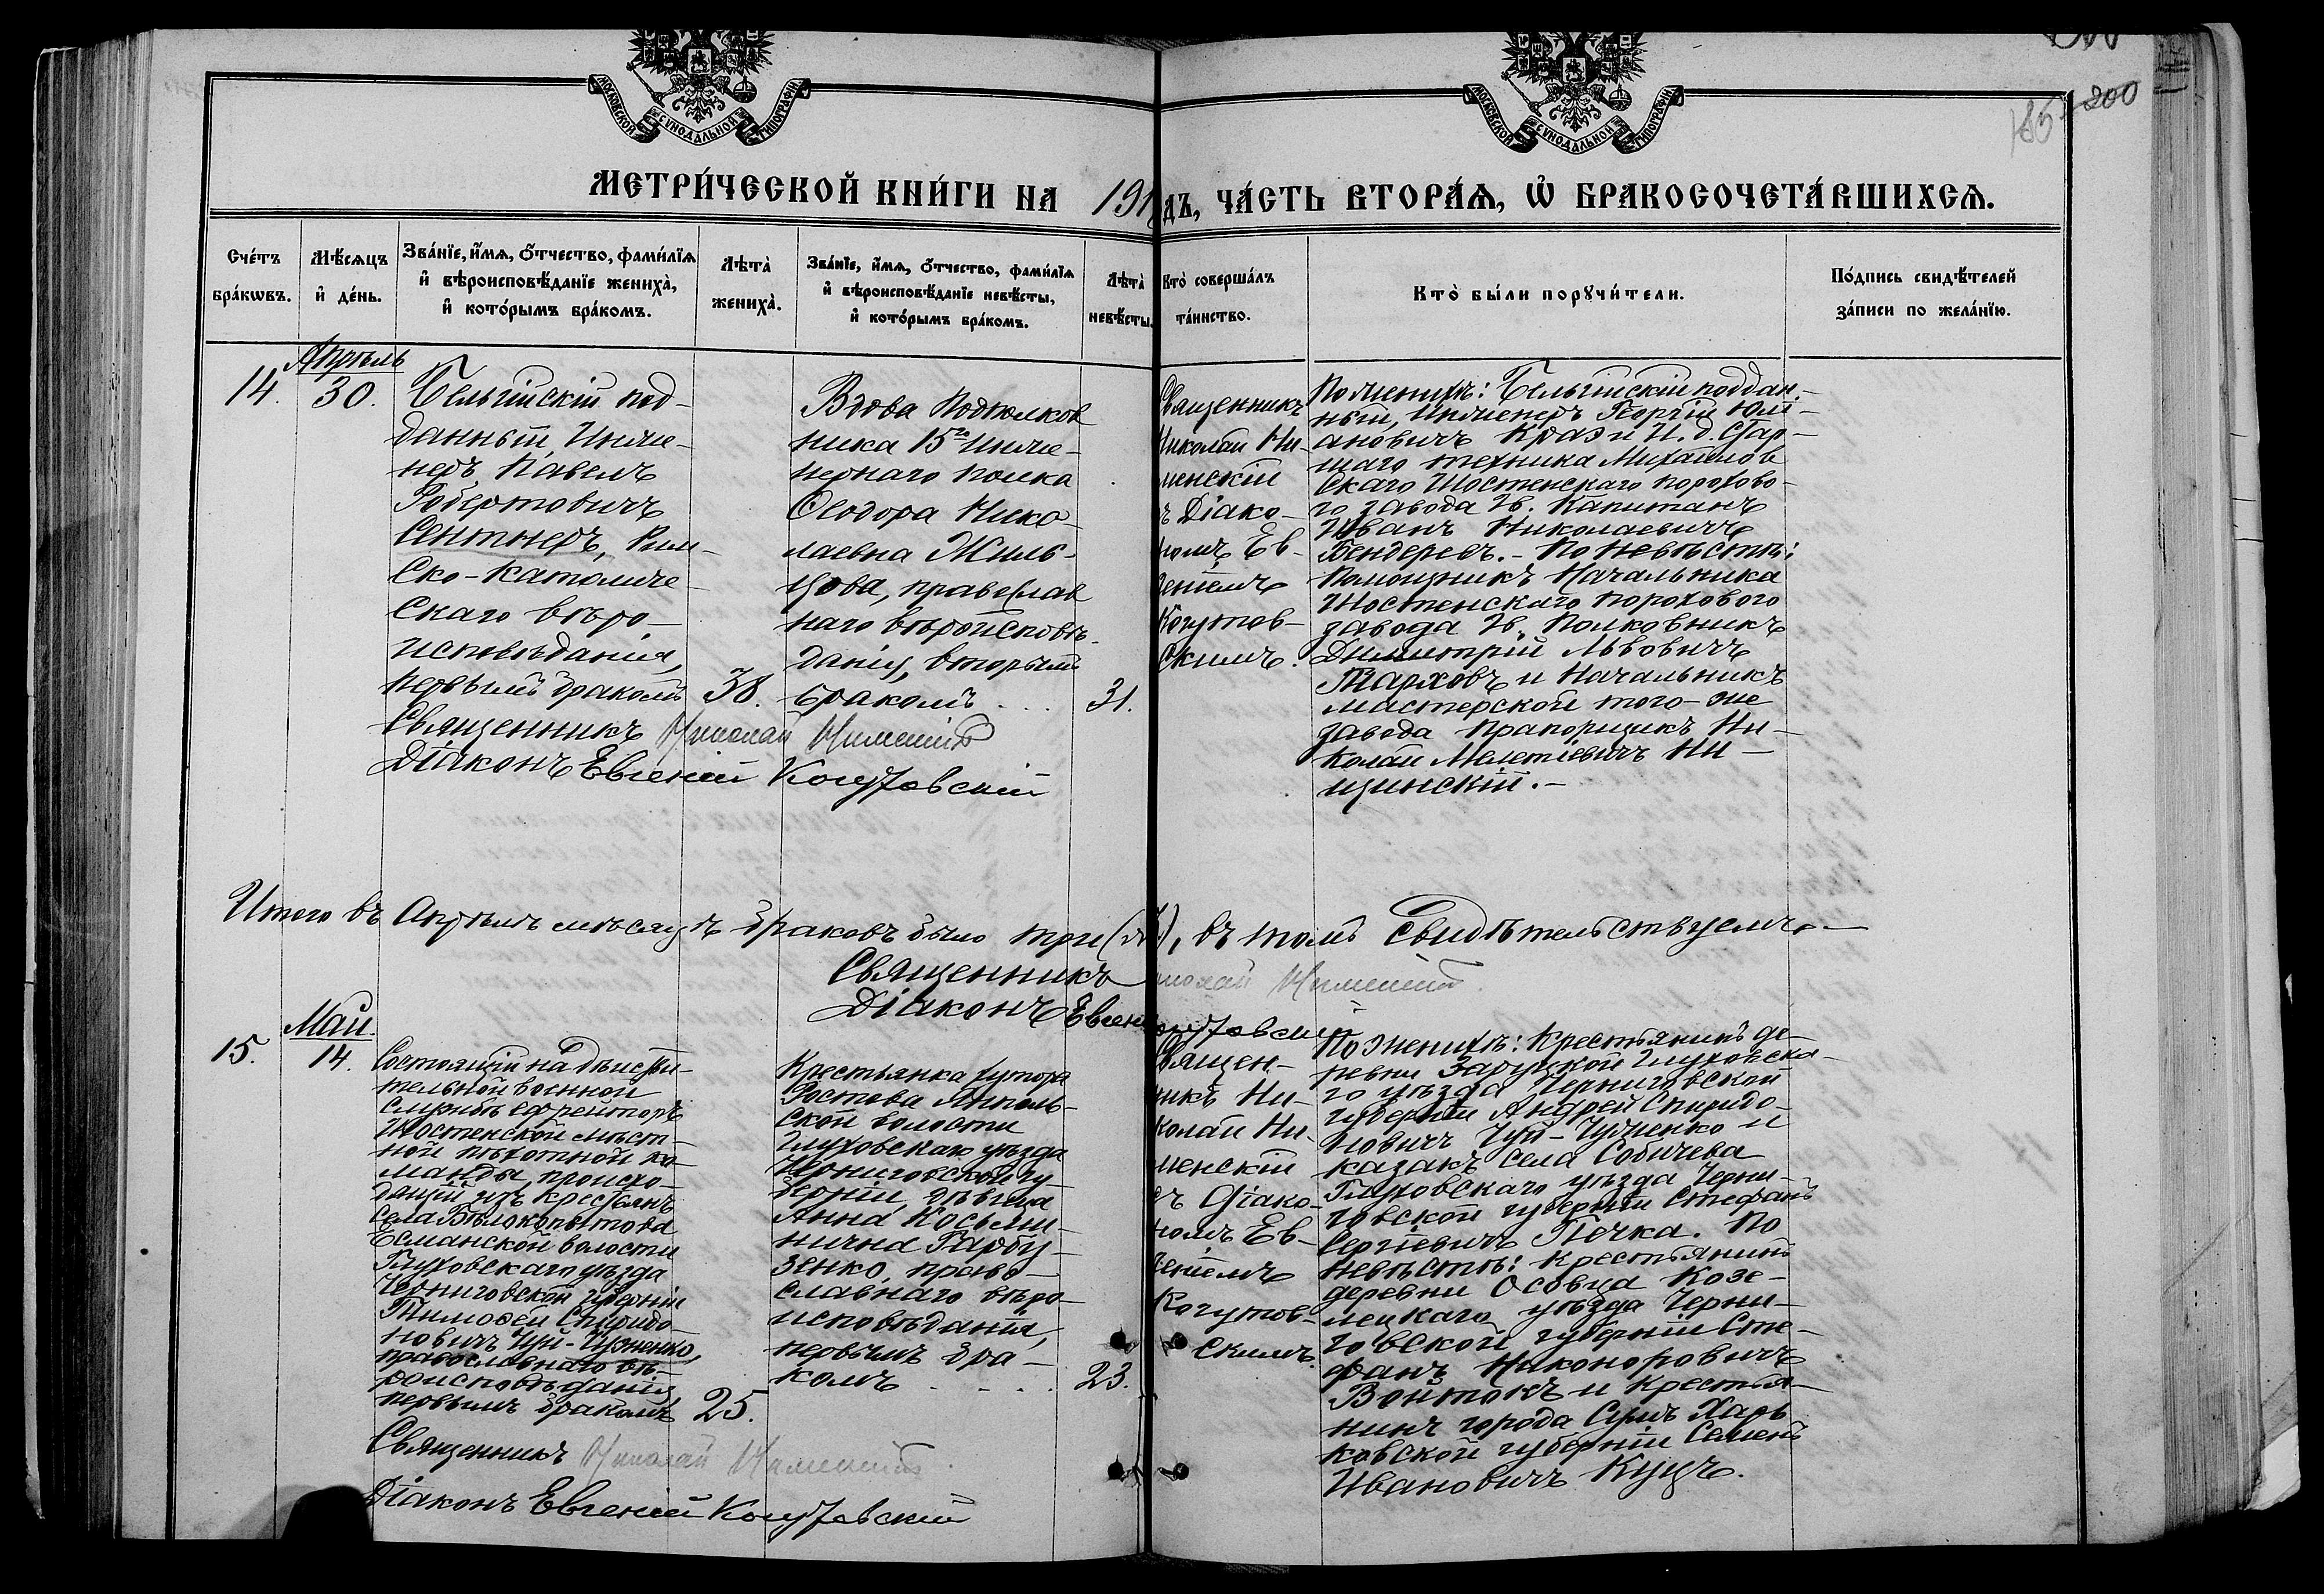 МОСКОВСКОЙ СѴНОДАЛЬНОЙ ТИПОГРАФІИ
МОСКОВСКОЙ СѴНОДАЛЬНОЙ ТИПОГРАФІИ
185 200
МЕТРИ́ЧЕСКОЙ КНИ́ГИ НА 191 ДЪ, ЧА́СТЬ ВТОРА́Ѧ, Ѡ҆ БРАКОСОЧЕТА́ВШИХСѦ.
Сче́тъ
бра́кѡвъ.
Мѣ́сѧцъ
и҆ де́нь.
Зва́нїе, и҆́мѧ, ѻ҆́тчество, фами́лїѧ
и҆ вѣроисповѣ́данїе жениха̀,
и҆ кото́рымъ бра́комъ.
Лѣта̀
жениха̀.
Зва́нїе, и҆́мѧ, ѻ҆́тчество, фами́лїѧ
и҆ вѣроисповѣ́данїе невѣ́сты,
и҆ кото́рымъ бра́комъ.
Лѣта̀
невѣ́сты.
Кто̀ соверша́лъ
та́инство.
Кто̀ бы́ли порꙋчи́тели.
По́дпись свидѣ́телей
за́писи по жела́нїю.
Апрѣль
14.
30.
Бельгійскій под-
данный, Инже-
неръ, Павелъ
Робертовичъ
Сентнеръ, Рим-
ско-Католиче-
скаго вѣро-
исповѣданія,
первымъ бракомъ
38.
Вдова Подполков
ника 15го Инже-
нернаго полка
Ѳеодора Нико-
лаевна Жиль-
цова, православ
наго вѣроисповѣ-
данія, вторымъ
бракомъ . . .
31.
Священникъ
Николай Ни-
менскій
ъ Діако-
номъ Ев-
геніемъ
Когутов-
скимъ.
По женихѣ: Бельгійскій поддан-
ный, инженеръ Георгій Юлі-
ановичъ Краэ и И. д. Стар-
шаго техника Михайлов
скаго Шостенскаго порохово-
го завода Гв. Капитанъ
Иванъ Николаевичъ
Бендеревъ. - По невѣстѣ:
Помощникъ Начальника
Шостенскаго порохового
завода Гв. Полковникъ
Димитрій Львовичъ
Тарховъ и Начальникъ
мастерской того-же
завода Прапорщикъ Ни-
колай Мелетіевичъ Ни-
щинскій.-
Священникъ Николай
Діаконъ Евгеній Когутовскій
Итого въ Апрѣлѣ мѣсяцѣ браковъ было три (3), въ томъ свидѣтельствуемъ.-
Священникъ
Діаконъ Евген
Май.
15.
14.
Состоящій на дѣистви-
тельной военной
службѣ ефрейторъ
Шостенской мѣст-
ной пѣхотной ко-
манды, происхо-
дящій изъ крестьянъ
села Бѣлокопытова
Есманской волости
Глуховскаго уѣзда
Черниговской губерніи
Тимоѳей Спиридо-
новичъ Чуй-Чуженко,
православнаго вѣ-
роисповѣданія,
первымъ бракомъ
25.
Крестьянка хутора
Ростова Ямполь-
ской волости
Глуховскаго уѣзда
Черниговской гу-
берніи, дѣвица
Анна Косьми-
нична Гарбу-
зенко, право-
славнаго вѣро-
исповѣданія,
первымъ бра-
комъ . . . .
23.
Священ-
никъ Ни-
колай Ни-
менскій
съ Діако-
номъ Ев-
геніемъ
Когутов-
скимъ.
По женихѣ: Крестьянинъ де-
ревни Заруцкой Глуховска-
го уѣзда Черниговской
губерніи Андрей Спиридо-
новичъ Чуй-Чуженко и
казакъ села Собичева
Глуховскаго уѣзда Черни-
говской губерніи Стефанъ
Сергіевичъ Печка. По
невѣстѣ: Крестьянинъ
деревни Осовца Козе-
лецкаго уѣзда Черни-
говской губерніи Сте-
фанъ Никоноровичъ
Войтокъ и крестья-
нинъ города Сумъ Харь
ковской губерніи Семенъ
Ивановичъ Куцъ.
Священникъ Николай
Діаконъ Евгеній Когутовскій